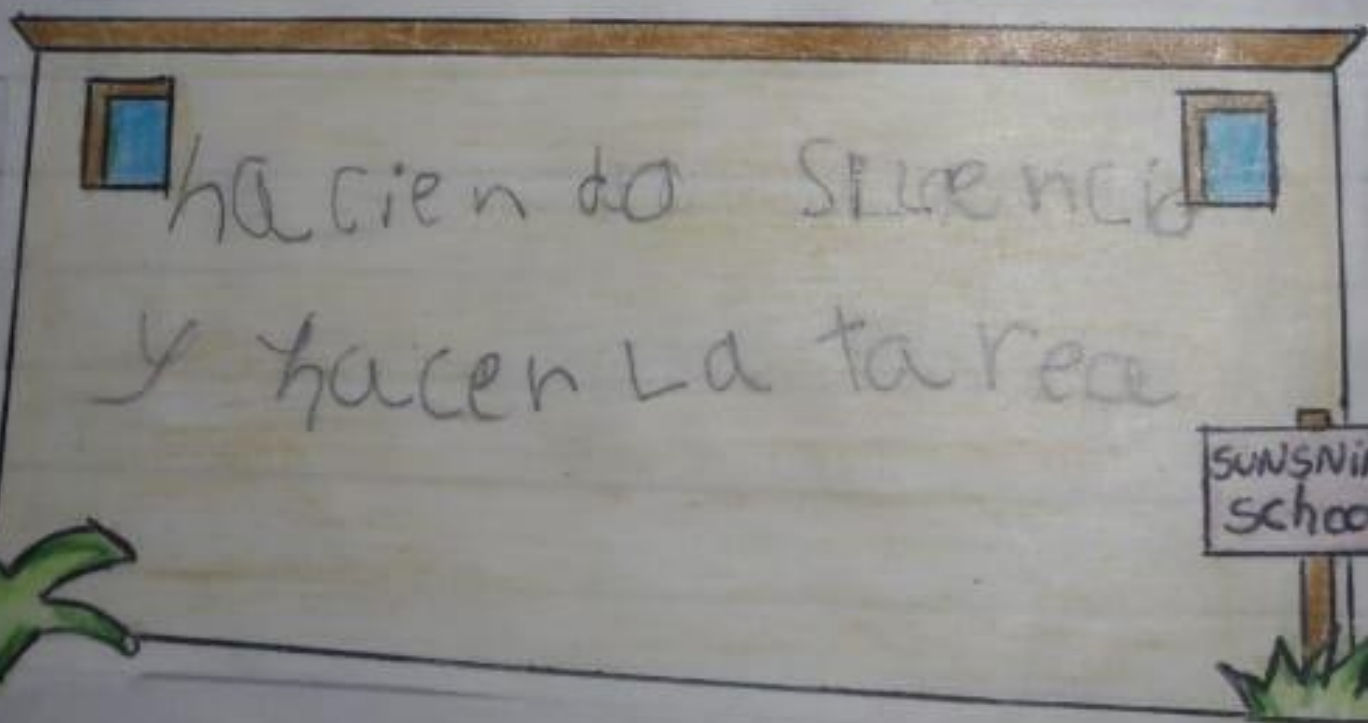 haciendo Silencio
y hacer La tarea
SUNSNiN
School